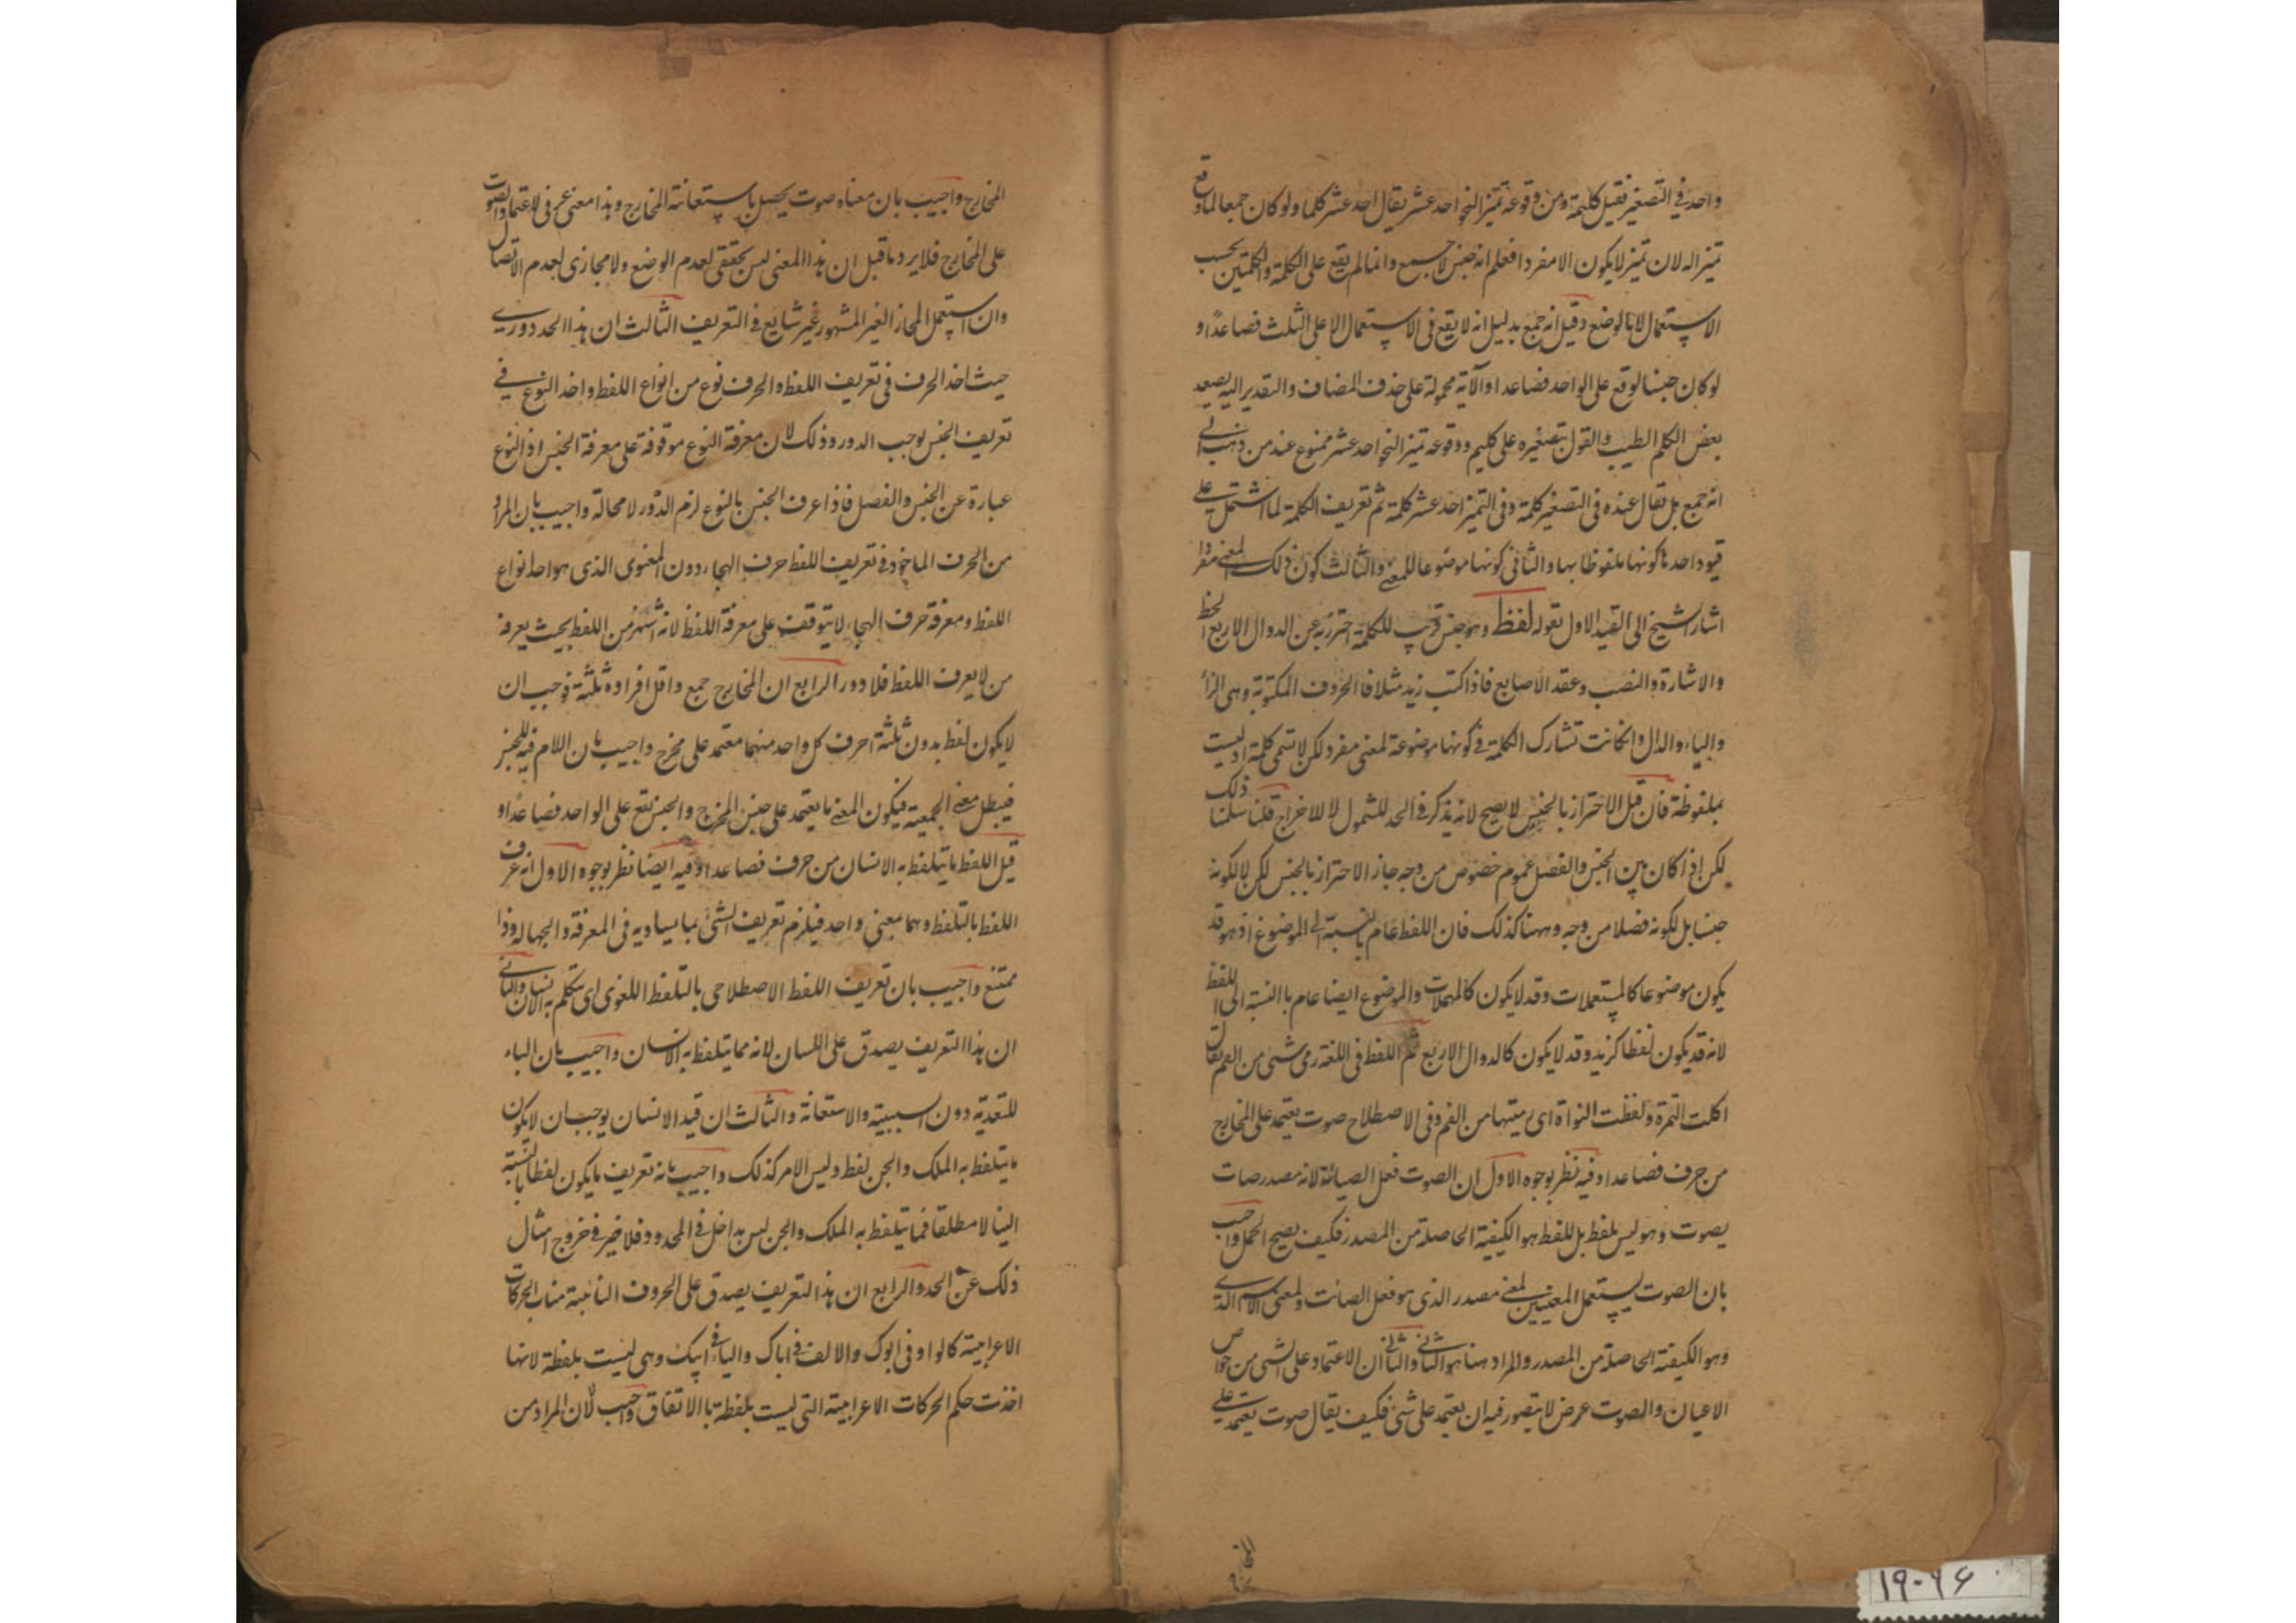 واحد في التصغير فقيل كليمة ومن وقوعه تميز النحو احد عشر يقال احد عشر كلما ولو كان جمعا لما وقع
تميزا له لان تميز لا يكون الا مفردا فعلم انه جنس لا جمع وانما لم يقع على الكلمة والكلمتين بحسب
الاستعمال لا بالوضع وقيل انه جمع بدليل انه لا يقع في الاستعمال الا على الثلث فصاعدًا و
لو كان جنسا لوقع على الواحد فصاعدا والآية محمولة على حذف المضاف والتقدير اليه يصعد
بعض الكلم الطيب والقول بتصغيره على كليم ووقوعه تميز النحو احد عشر ممنوع عند من ذهب الى
انه جمع بل يقال عنده في التصغير كلمة وفي التميز احد عشر كلمة ثم تعريف الكلمة لما اشتمل على
قيود احدها كونها ملفوظا بها والثاني كونها موضوعا للمعنى والثالث كون ذلك المعنى مفردا
اشار الشيخ الى القيد الاول بقوله لفظ وهو جنس قريب للكلمة احترز به عن الدوال الاربع الخط
والاشارة والنصب وعقد الاصابع فاذا كتب زيد مثلا فالحروف المكتوبة وهى الزاء
والياء والدال وان كانت تشارك الكلمة في كونها موضوعة لمعنى مفرد لكن لا تسمى كلمة اذ ليست
بملفوظة فان قيل الاحتراز بالجنس لا يصح لانه يذكر في الحد للشمول لا للاخراج قلنا سلمنا ذلك
لكن اذا كان بين الجنس والفصل عموم خصوص من وجه جاز الاحتراز بالجنس لكن لا لكونه
جنسا بل لكونه فصلا من وجه وههنا كذلك فان اللفظ عام بالنسبة الى الموضوع اذ هو قد
يكون موضوعا كالمستعملات وقد لا يكون كالمهملات والموضوع ايضا عام باالنسبة الى اللفظ
لانه قد يكون لفظا كزيد وقد لا يكون كالدوال الاربع ثم اللفظ في اللغة رمى شى من الفم يقال
اكلت التمرة ولفظت النواة اى رميتها من الفم وفي الاصطلاح صوت يعتمد على المخارج
من حرف فصاعدا وفيه نظر بوجوه الاول ان الصوت فعل الصيائة لانه مصدر صات
يصوت وهو ليس بلفظ بل للفظ هو الكيفية الحاصلة من المصدر فكيف يصح الحمل واجيب
بان الصوت يستعمل المعنيين لمعنى مصدر الذى هو فعل الصائت ولمعنى الاسم الذى
وهو الكيفية الحاصلة من المصدر والمراد هنا هو الثانى والثانى ان الاعتماد على الشى من خواص
الاعيان والصوت عرض لا يتصور فيه ان يعتمد على شئ فكيف يقال صوت يعتمد على
المخارج
المخارج واجيب بان معناه صوت يحصل باستعانة المخارج وهذا معنى عرفى لاعتماد الصوت
على المخارج فلا يرد ما قيل ان هذا المعنى ليس بحقيقى لعدم الوضع ولا مجازى لعدم الاتصال
وان استعمل المجاز الغير المشهور غير شايع في التعريف الثالث ان هذا الحد دورى
حيث اخذ الحرف في تعريف اللفظ والحرف نوع من انواع اللفظ واخذ النوع في
تعريف الجنس يوجب الدور وذلك لان معرفة النوع موقوفة على معرفة الجنس اذ النوع
عبارة عن الجنس والفصل فاذا عرف الجنس بالنوع لزم الدور لا محالة واجيب بان المراد
من الحرف الماخوذ في تعريف اللفظ حرف الهجاء دون المعنوى الذى هو احد انواع
اللفظ ومعرفة حرف الهجاء لا يتوقف على معرفة اللفظ لانه اشهر من اللفظ بحيث يعرفه
من لا يعرف اللفظ فلا دور الرابع ان المخارج جمع واقل افراده ثلثة فوجب ان
لا يكون لفظ بدون ثلثة احرف كل واحد منهما معتمد على مخرج واجيب بان اللام فيه للجنس
فيبطل معنى الجمعية فيكون المعنى ما يعتمد على جنس المخرج والجنس يقع على الواحد فصاعدًا و
قيل اللفظ ما يتلفظ به الانسان من حرف فصاعدا وفيه ايضا نظر بوجوه الاول انه عرف
اللفظ بالتلفظ وهما بمعنى واحد فيلزم تعريف الشئ بما يساويه في المعرفة والجهالة وذا
ممتنع واجيب بان تعريف اللفظ الاصطلاحى بالتلفظ اللغوى اى يتكلم به الانسان والثانى
ان هذا التعريف يصدق على اللسان لانه مما يتلفظ به الانسان واجيب بان الباء
للتعدية دون السببية والاستعانة والثالث ان قيد الانسان يوجب ان لا يكون
ما يتلفظ به الملك والجن لفظ وليس الامر كذلك واجيب بانه تعريف ما يكون لفظا بالنسبة
الينا لا مطلقا فما يتلفظ به الملك والجن ليس بداخل في المحدود فلا ضير في خروج امثال
ذلك عن الحد والرابع ان هذا التعريف يصدق على الحروف النائبة مناب الحركات
الاعرابية كالواو في ابوك والالف في اباك والياء في ابيك وهى ليست بلفظة لانها
اخذت حكم الحركات الاعرابية التى ليست بلفظة باالاتفاق واجيب لان المراد من
١٩٠٩۶